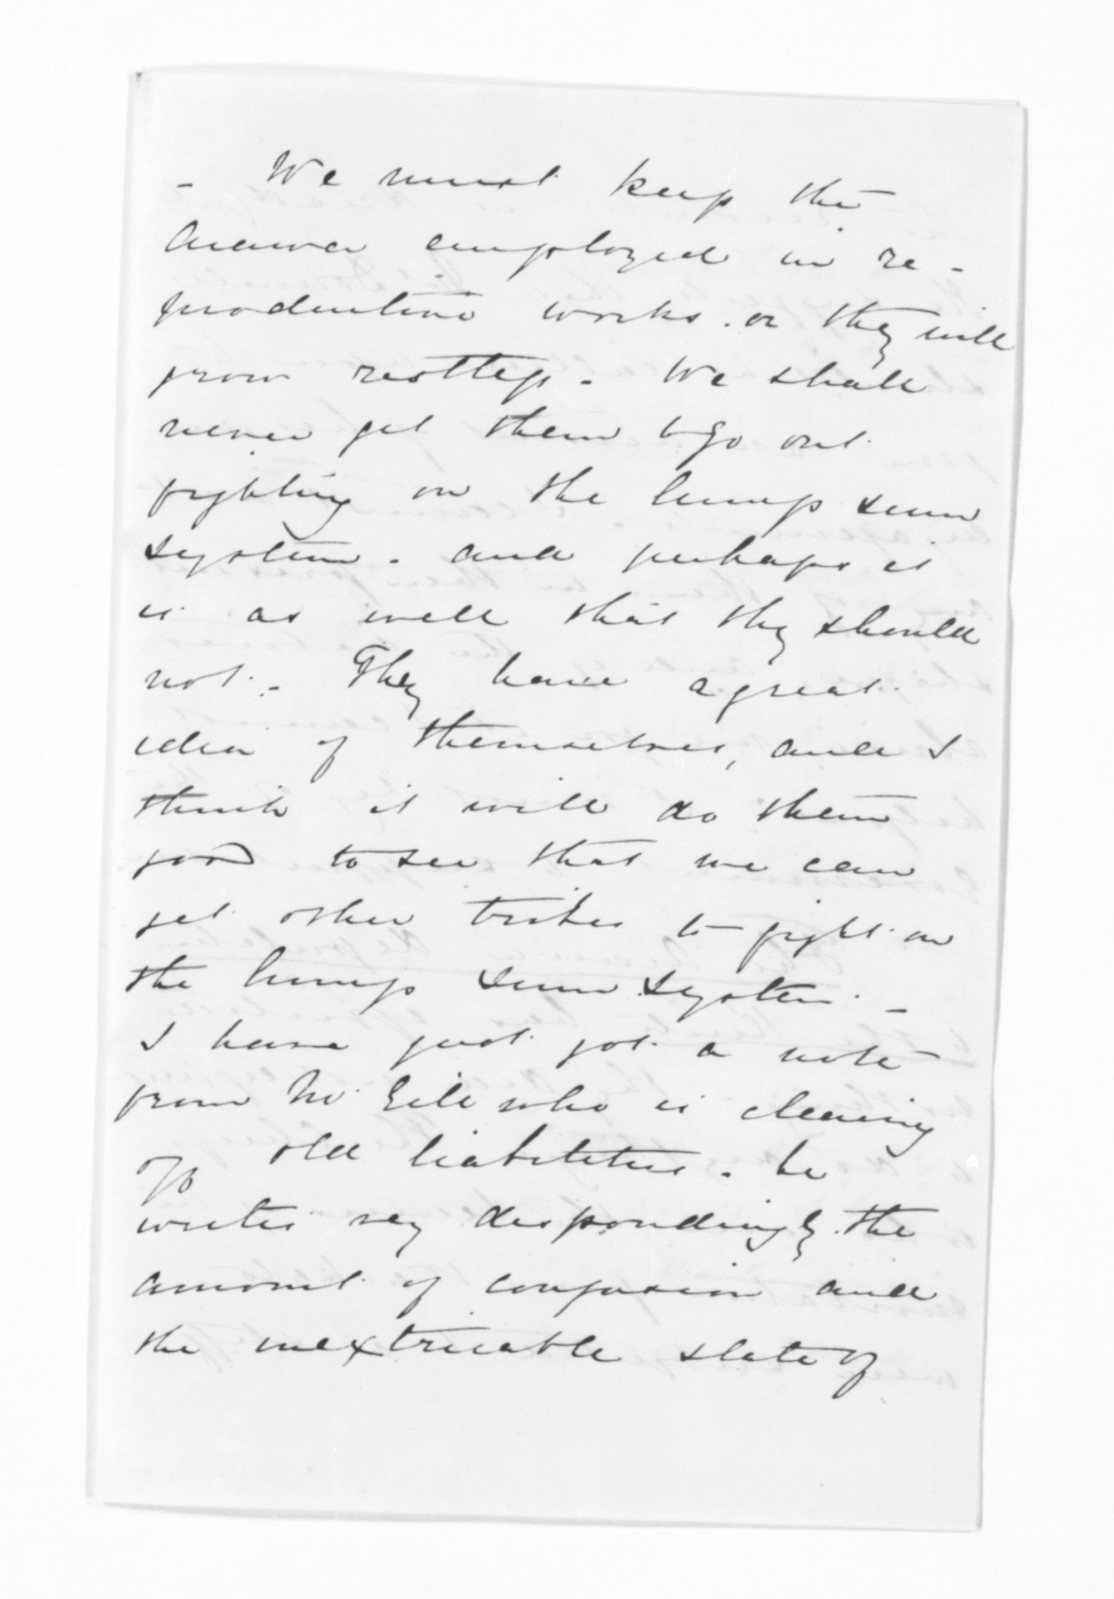 - We must keep the
Arawa employed in re-
productive works. or they will
grow restless. We shall
never get them to go out
fighting on the lump sum
system. and perhaps it
is as well that they should
not. They have a great
idea of themselves, and I
think it will do them
good to see that we can
get other tribes to fight on
the lump sum system. _
I have just got a note
from Mr. Gill who is clearing
up old liabilities. he
writes very despondingly. the
amount of confusion and
the inextricable state of